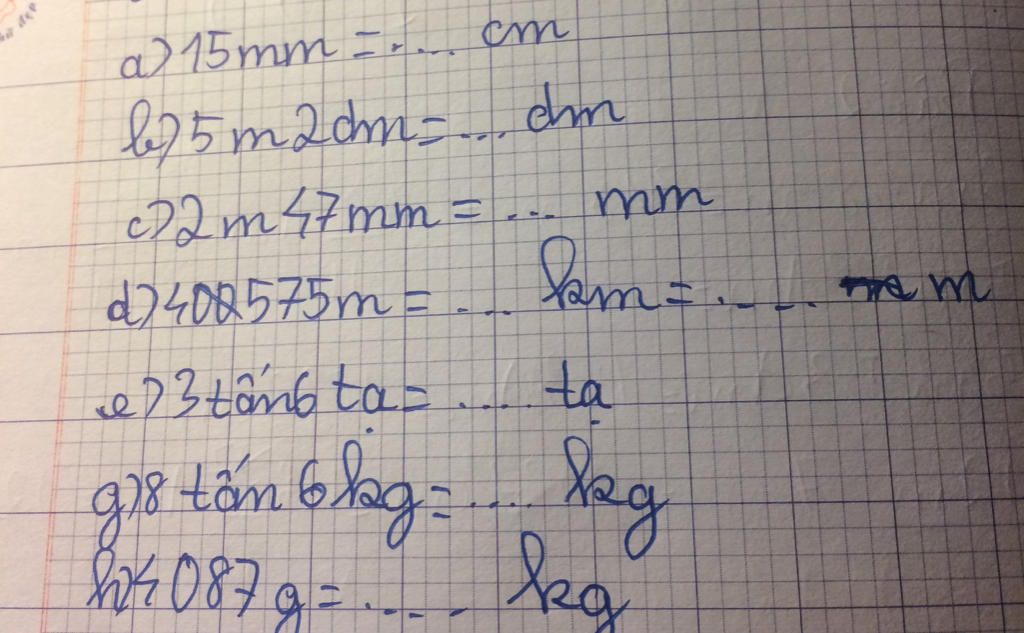 a) 15mm = .... cm
b) 5m 2dm = ... dm
c) 2m 47mm = ... mm
d) 402575m = ... km = ..... m
e) 3 tấn 6 tạ = .... tạ
g) 8 tấn 6 kg = .... kg
h) 4087g = ..... kg